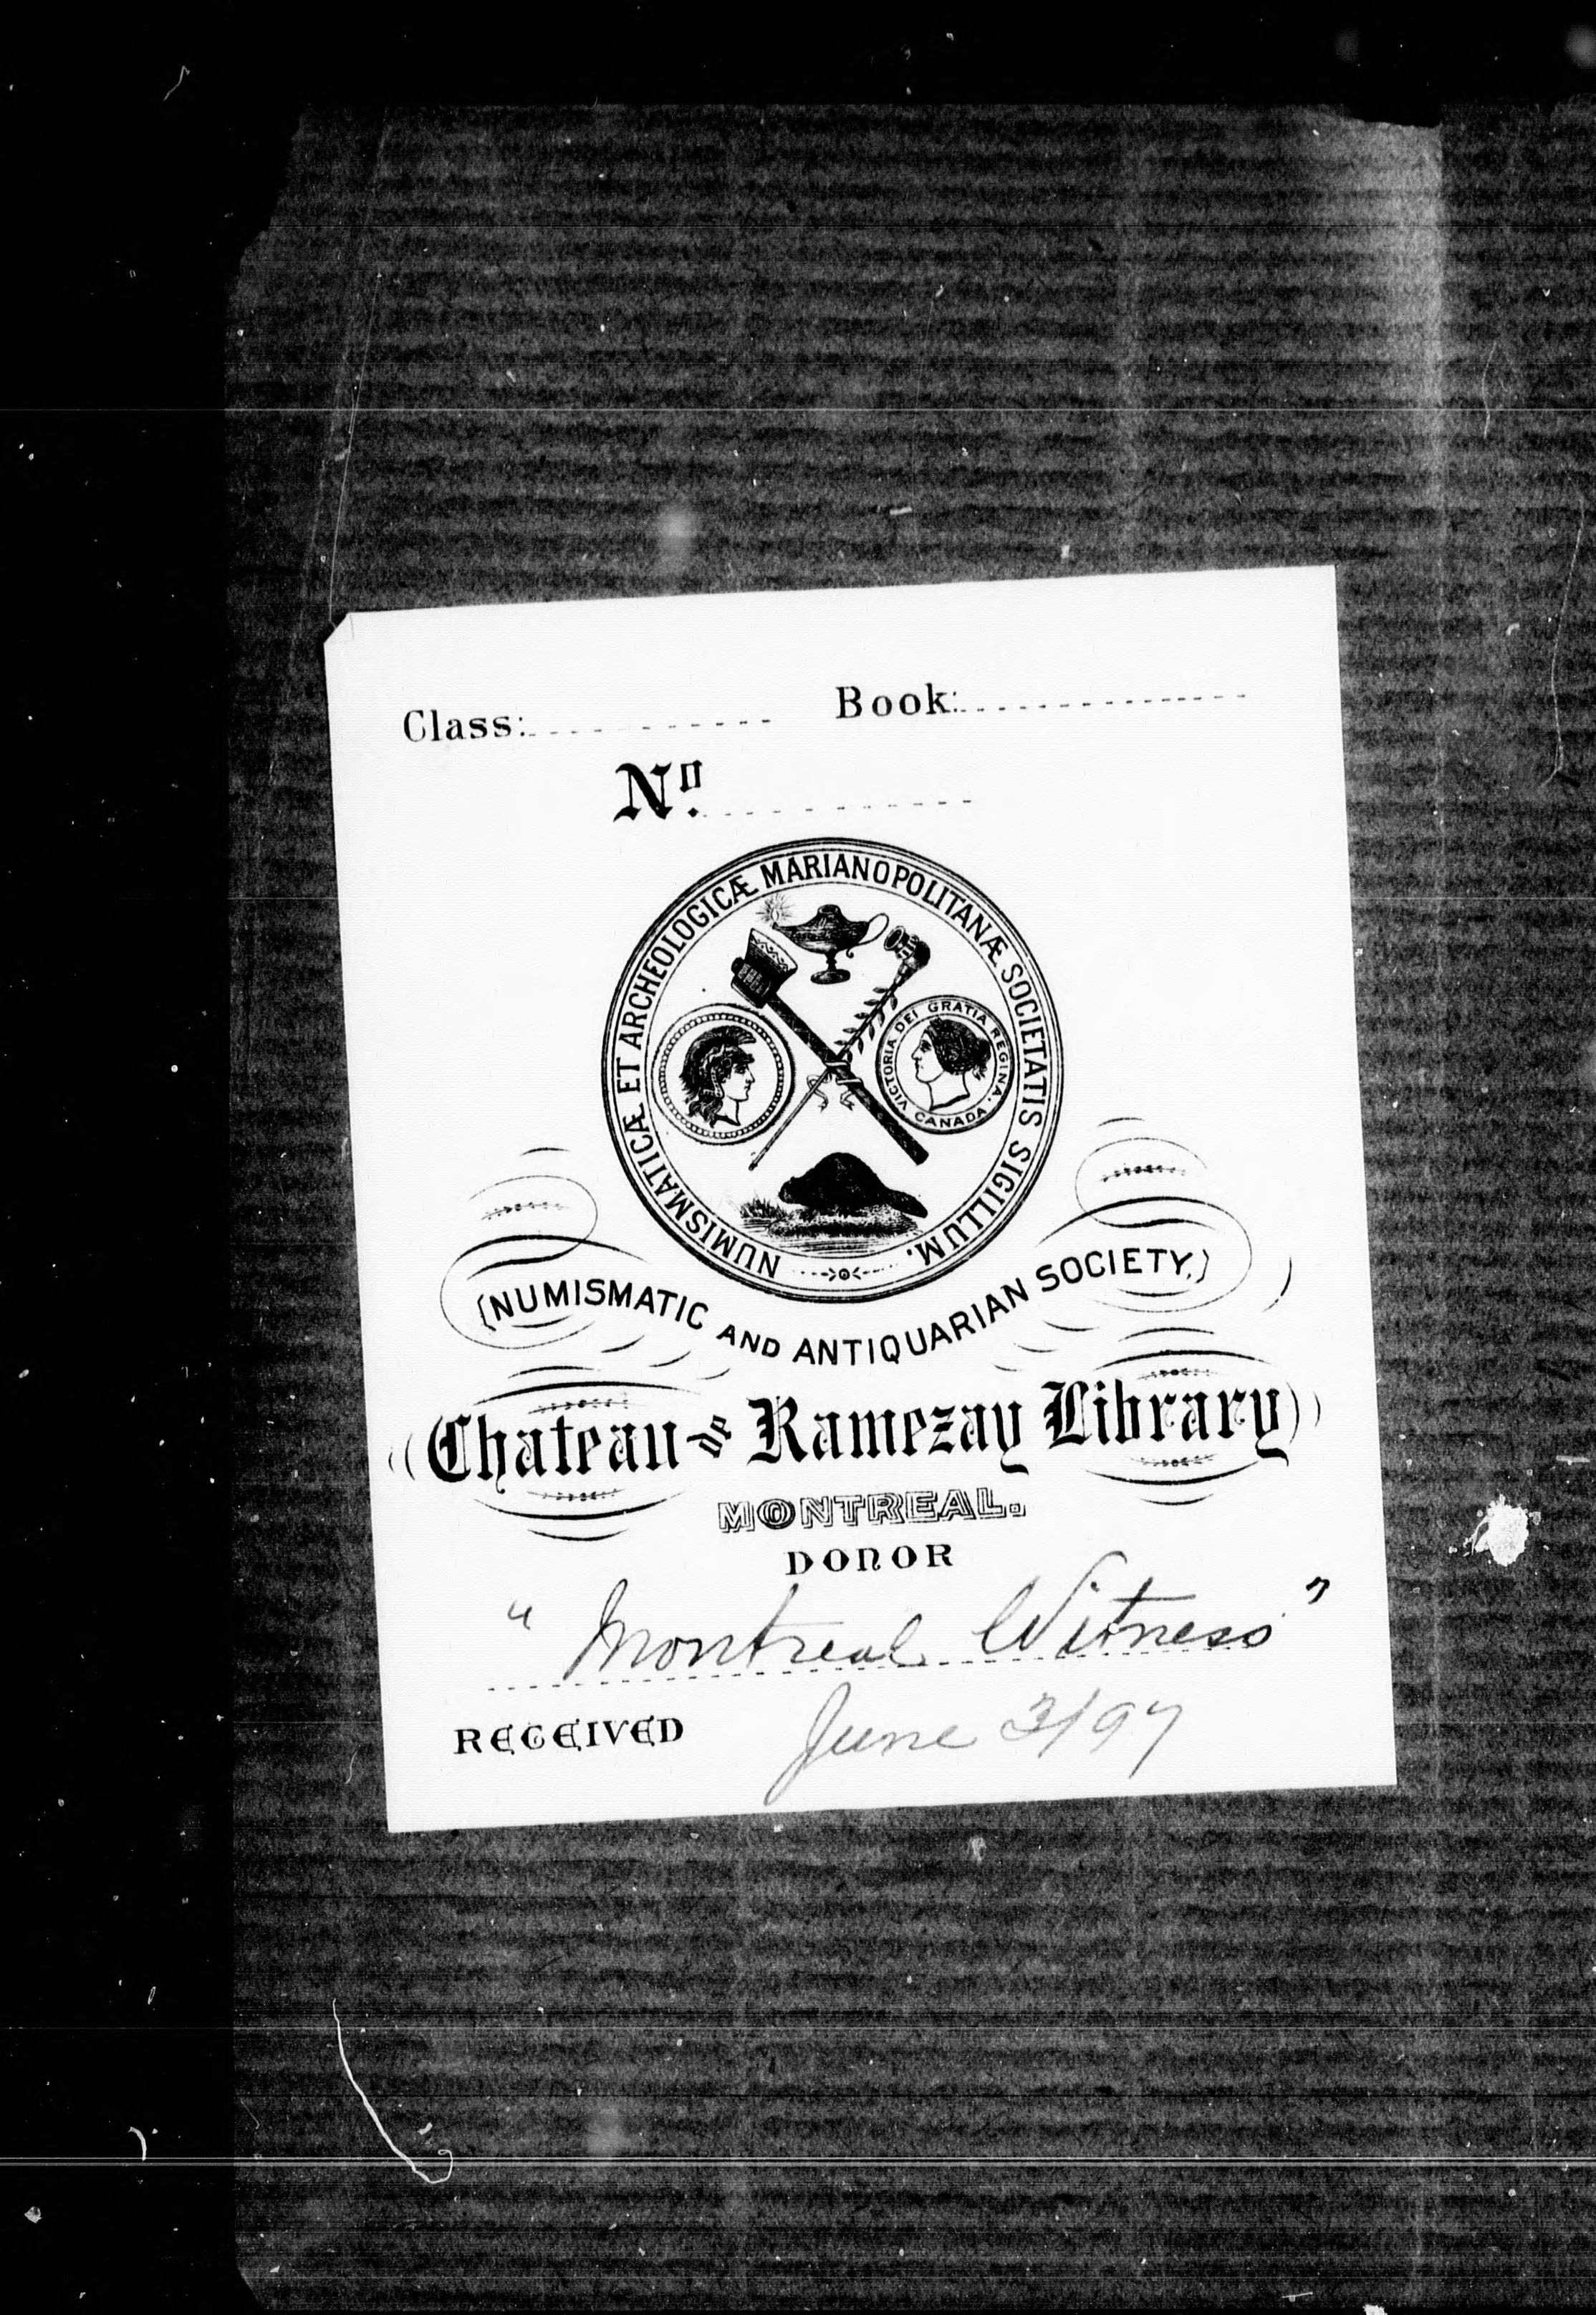 Class: Book:
No.
NUMISMATICÆ ET ARCHEOLOGICÆ MARIANOPOLITANÆ SOCIETATIS SIGILLUM.
VICTORIA DEI GRATIA REGINA.
CANADA
(NUMISMATIC AND ANTIQUARIAN SOCIETY,)
Chateau de Ramezay Library
MONTREAL.
DONOR
"Montreal Witness"
RECEIVED June 3/97